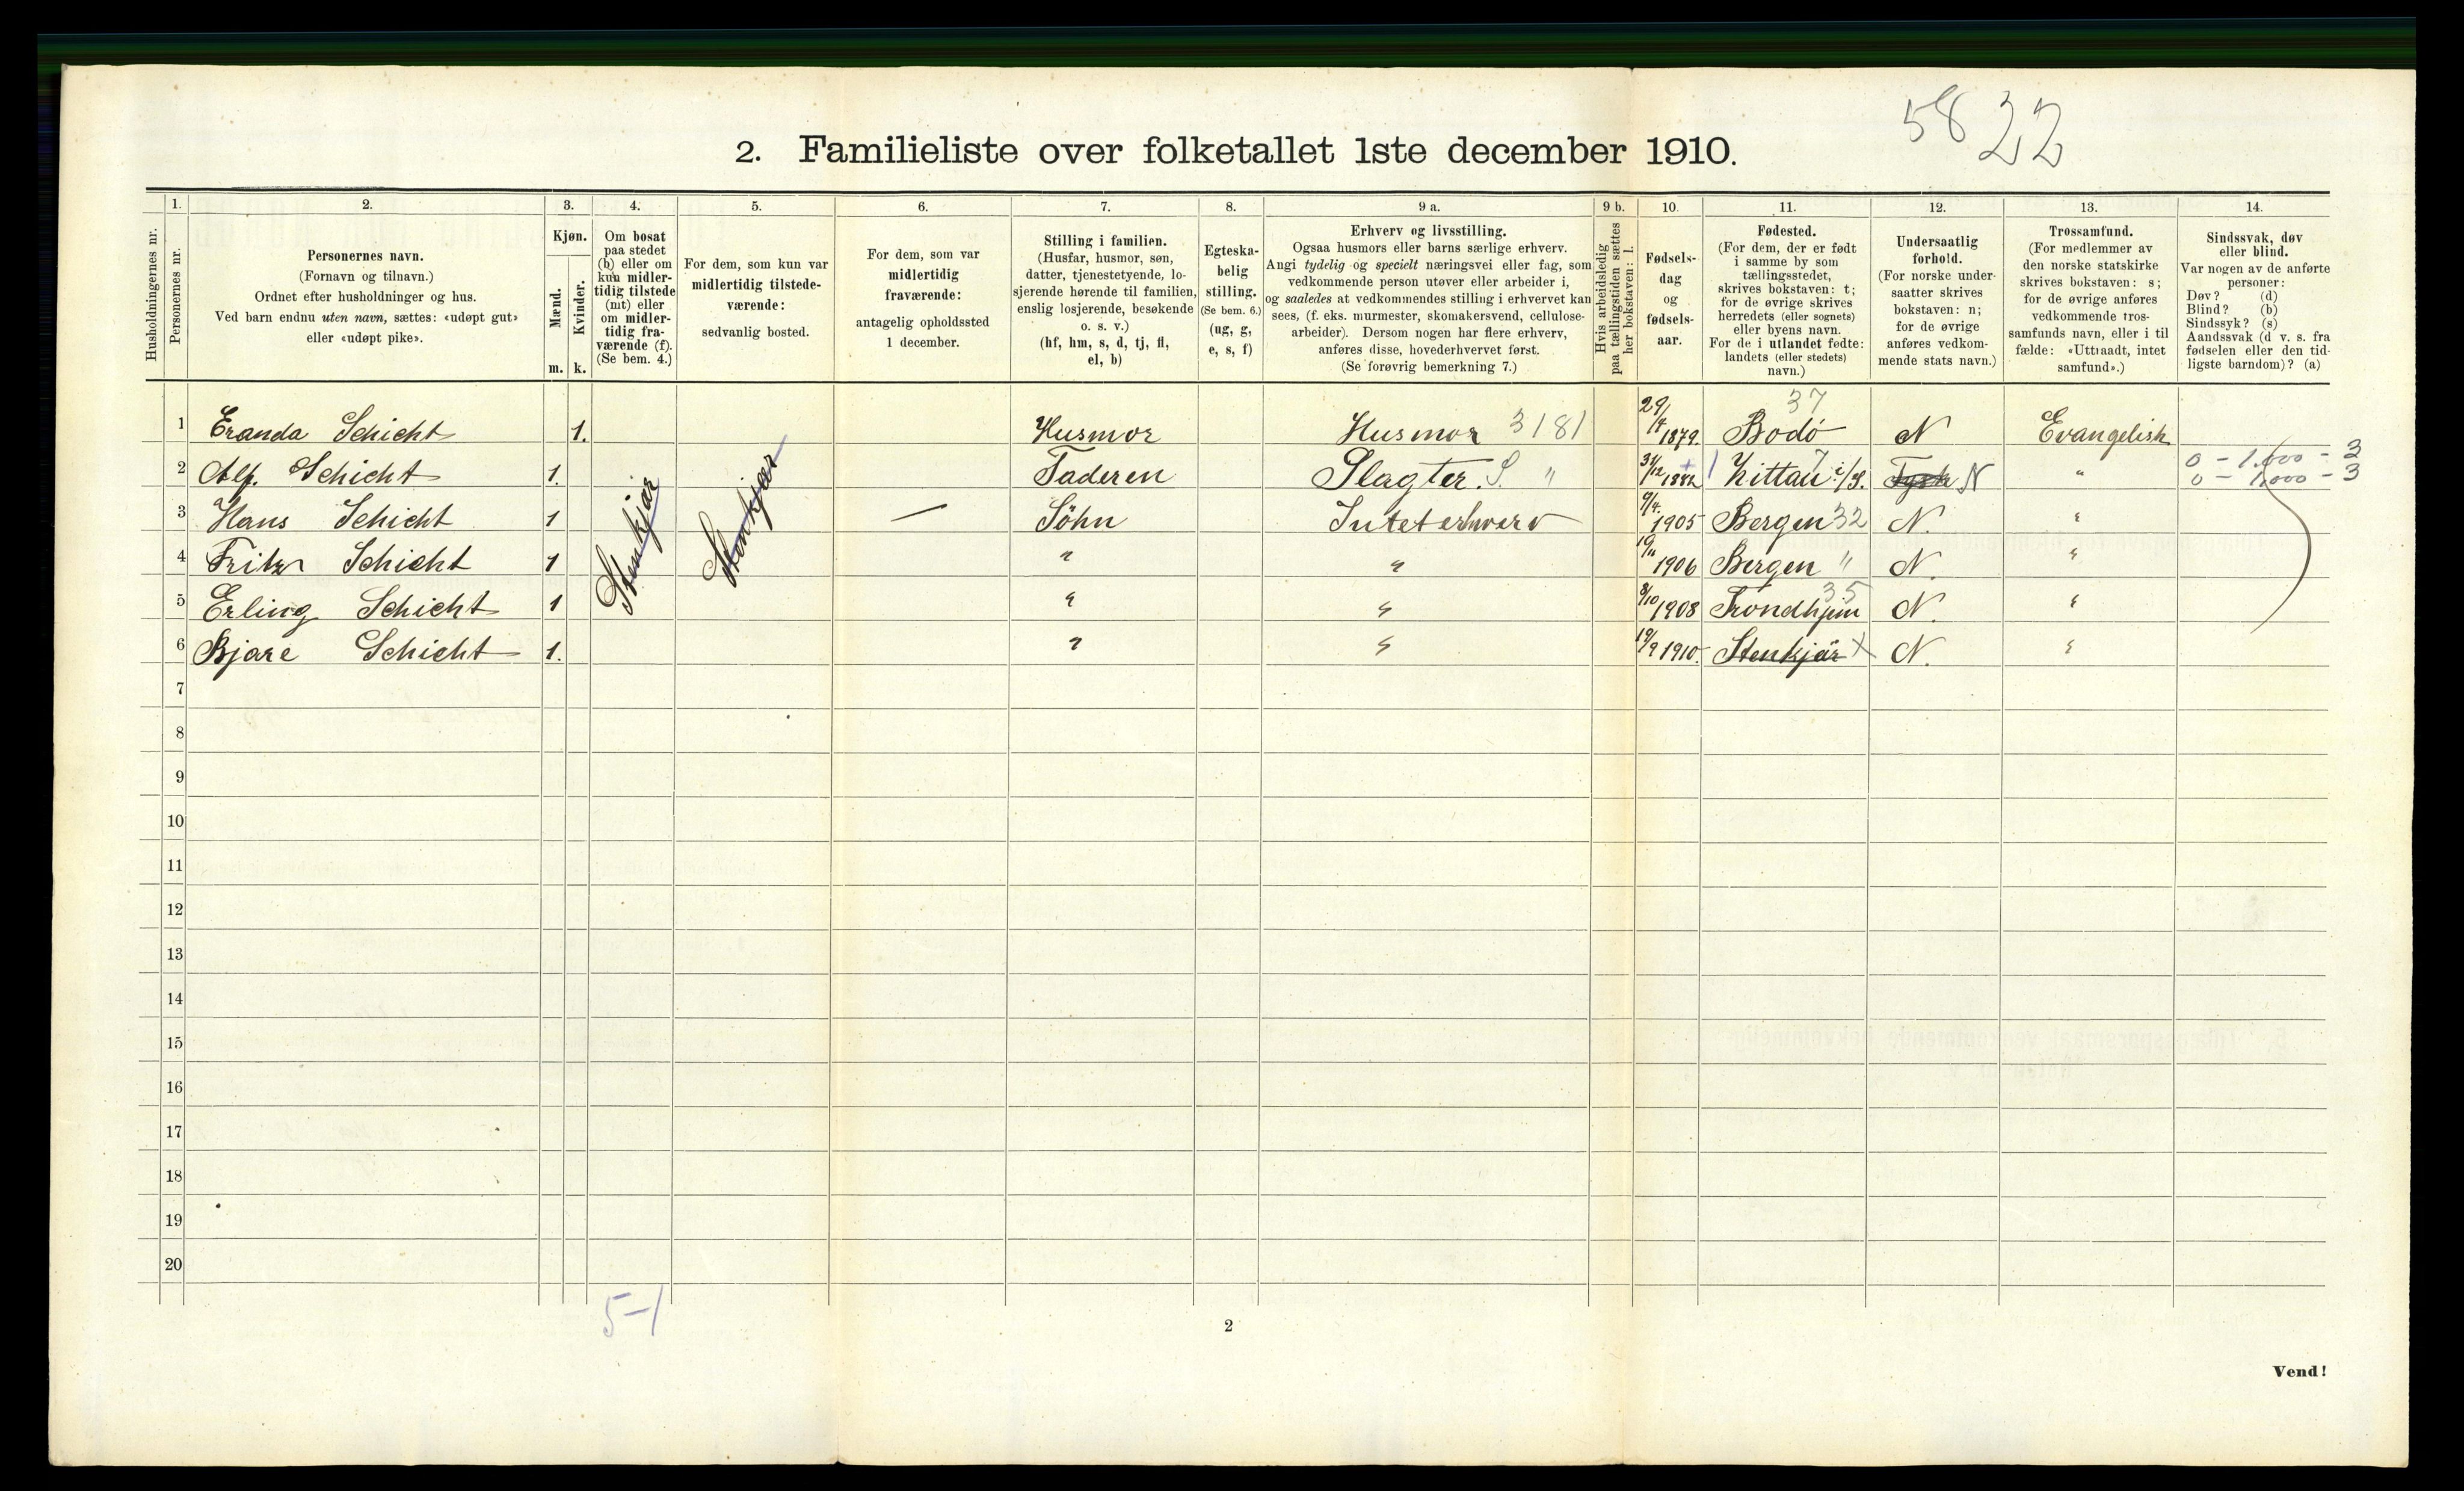 58 22
2. Familieliste over folketallet 1ste december 1910.
Husholdningernes nr.
1.
Personernes nr.
2.
Personernes navn.
(Fornavn og tilnavn.)
Ordnet efter husholdninger og hus.
Ved barn endnu uten navn, sættes: «udøpt gut»
eller «udøpt pike».
3.
Kjøn.
Mænd.
Kvinder.
m. k.
4.
Om bosat
paa stedet
(b) eller om
kun midler-
tidig tilstede
(mt) eller
om midler-
tidig fra-
værende (f).
(Se bem. 4.)
5.
For dem, som kun var
midlertidig tilstede-
værende:
sedvanlig bosted.
6.
For dem, som var
midlertidig
fraværende:
antagelig opholdssted
1 december.
7.
Stilling i familien.
(Husfar, husmor, søn,
datter, tjenestetyende, lo-
sjerende hørende til familien,
enslig losjerende, besøkende
o. s. v.)
(hf, hm, s, d, tj, fl,
el, b)
8.
Egteska-
belig
stilling.
(Se bem. 6.)
(ug, g,
e, s, f)
9 a.
Erhverv og livsstilling.
Ogsaa husmors eller barns særlige erhverv.
Angi tydelig og specielt næringsvei eller fag, som
vedkommende person utøver eller arbeider i,
og saaledes at vedkommendes stilling i erhvervet kan
sees, (f. eks. murmester, skomakersvend, cellulose-
arbeider). Dersom nogen har flere erhverv,
anføres disse, hovederhvervet først.
(Se forøvrig bemerkning 7.)
9 b.
Hvis arbeidsledig
paa tællingstiden sættes
her bokstaven: l.
10.
Fødsels-
dag
og
fødsels-
aar.
11.
Fødested.
(For dem, der er født
i samme by som
tællingsstedet,
skrives bokstaven: t;
for de øvrige skrives
herredets (eller sognets)
eller byens navn.
For de i utlandet fødte:
landets (eller stedets)
navn.)
12.
Undersaatlig
forhold.
(For norske under-
saatter skrives
bokstaven: n;
for de øvrige
anføres vedkom-
mende stats navn.)
13.
Trossamfund.
(For medlemmer av
den norske statskirke
skrives bokstaven: s;
for de øvrige anføres
vedkommende tros-
samfunds navn, eller i til
fælde: «Uttraadt, intet
samfund».)
14.
Sindssvak, døv
eller blind.
Var nogen av de anførte
personer:
Døv? (d)
Blind? (b)
Sindssyk? (s)
Aandssvak (d v. s. fra
fødselen eller den tid-
ligste barndom)? (a)
37
1 Eranda Schicht 1. Husmor Husmor 3181 29/7 1879. Bodö N Evangelisk
2 Alf. Schicht 1. Faderen Slagter. S. " 31/12 1882 Zittau i/S. Tysk N " 0 - 1.000 - 3
0 - 1.000 - 3
3 Hans Schicht 1 Stenkjær Stenkjær — Söhn Intet erhverv 9/4. 1905 Bergen 32 N. "
4 Fritz Schicht 1 " " 19/11 1906 Bergen " N. "
35
5 Erling Schicht 1 " " 8/10 1908 Trondhjem N. "
6 Bjare Schicht 1. " " 19/9 1910. Stenkjär X N. "
7
8
9
10
11
12
13
14
15
16
17
18
19
20
5-1
2
Vend!